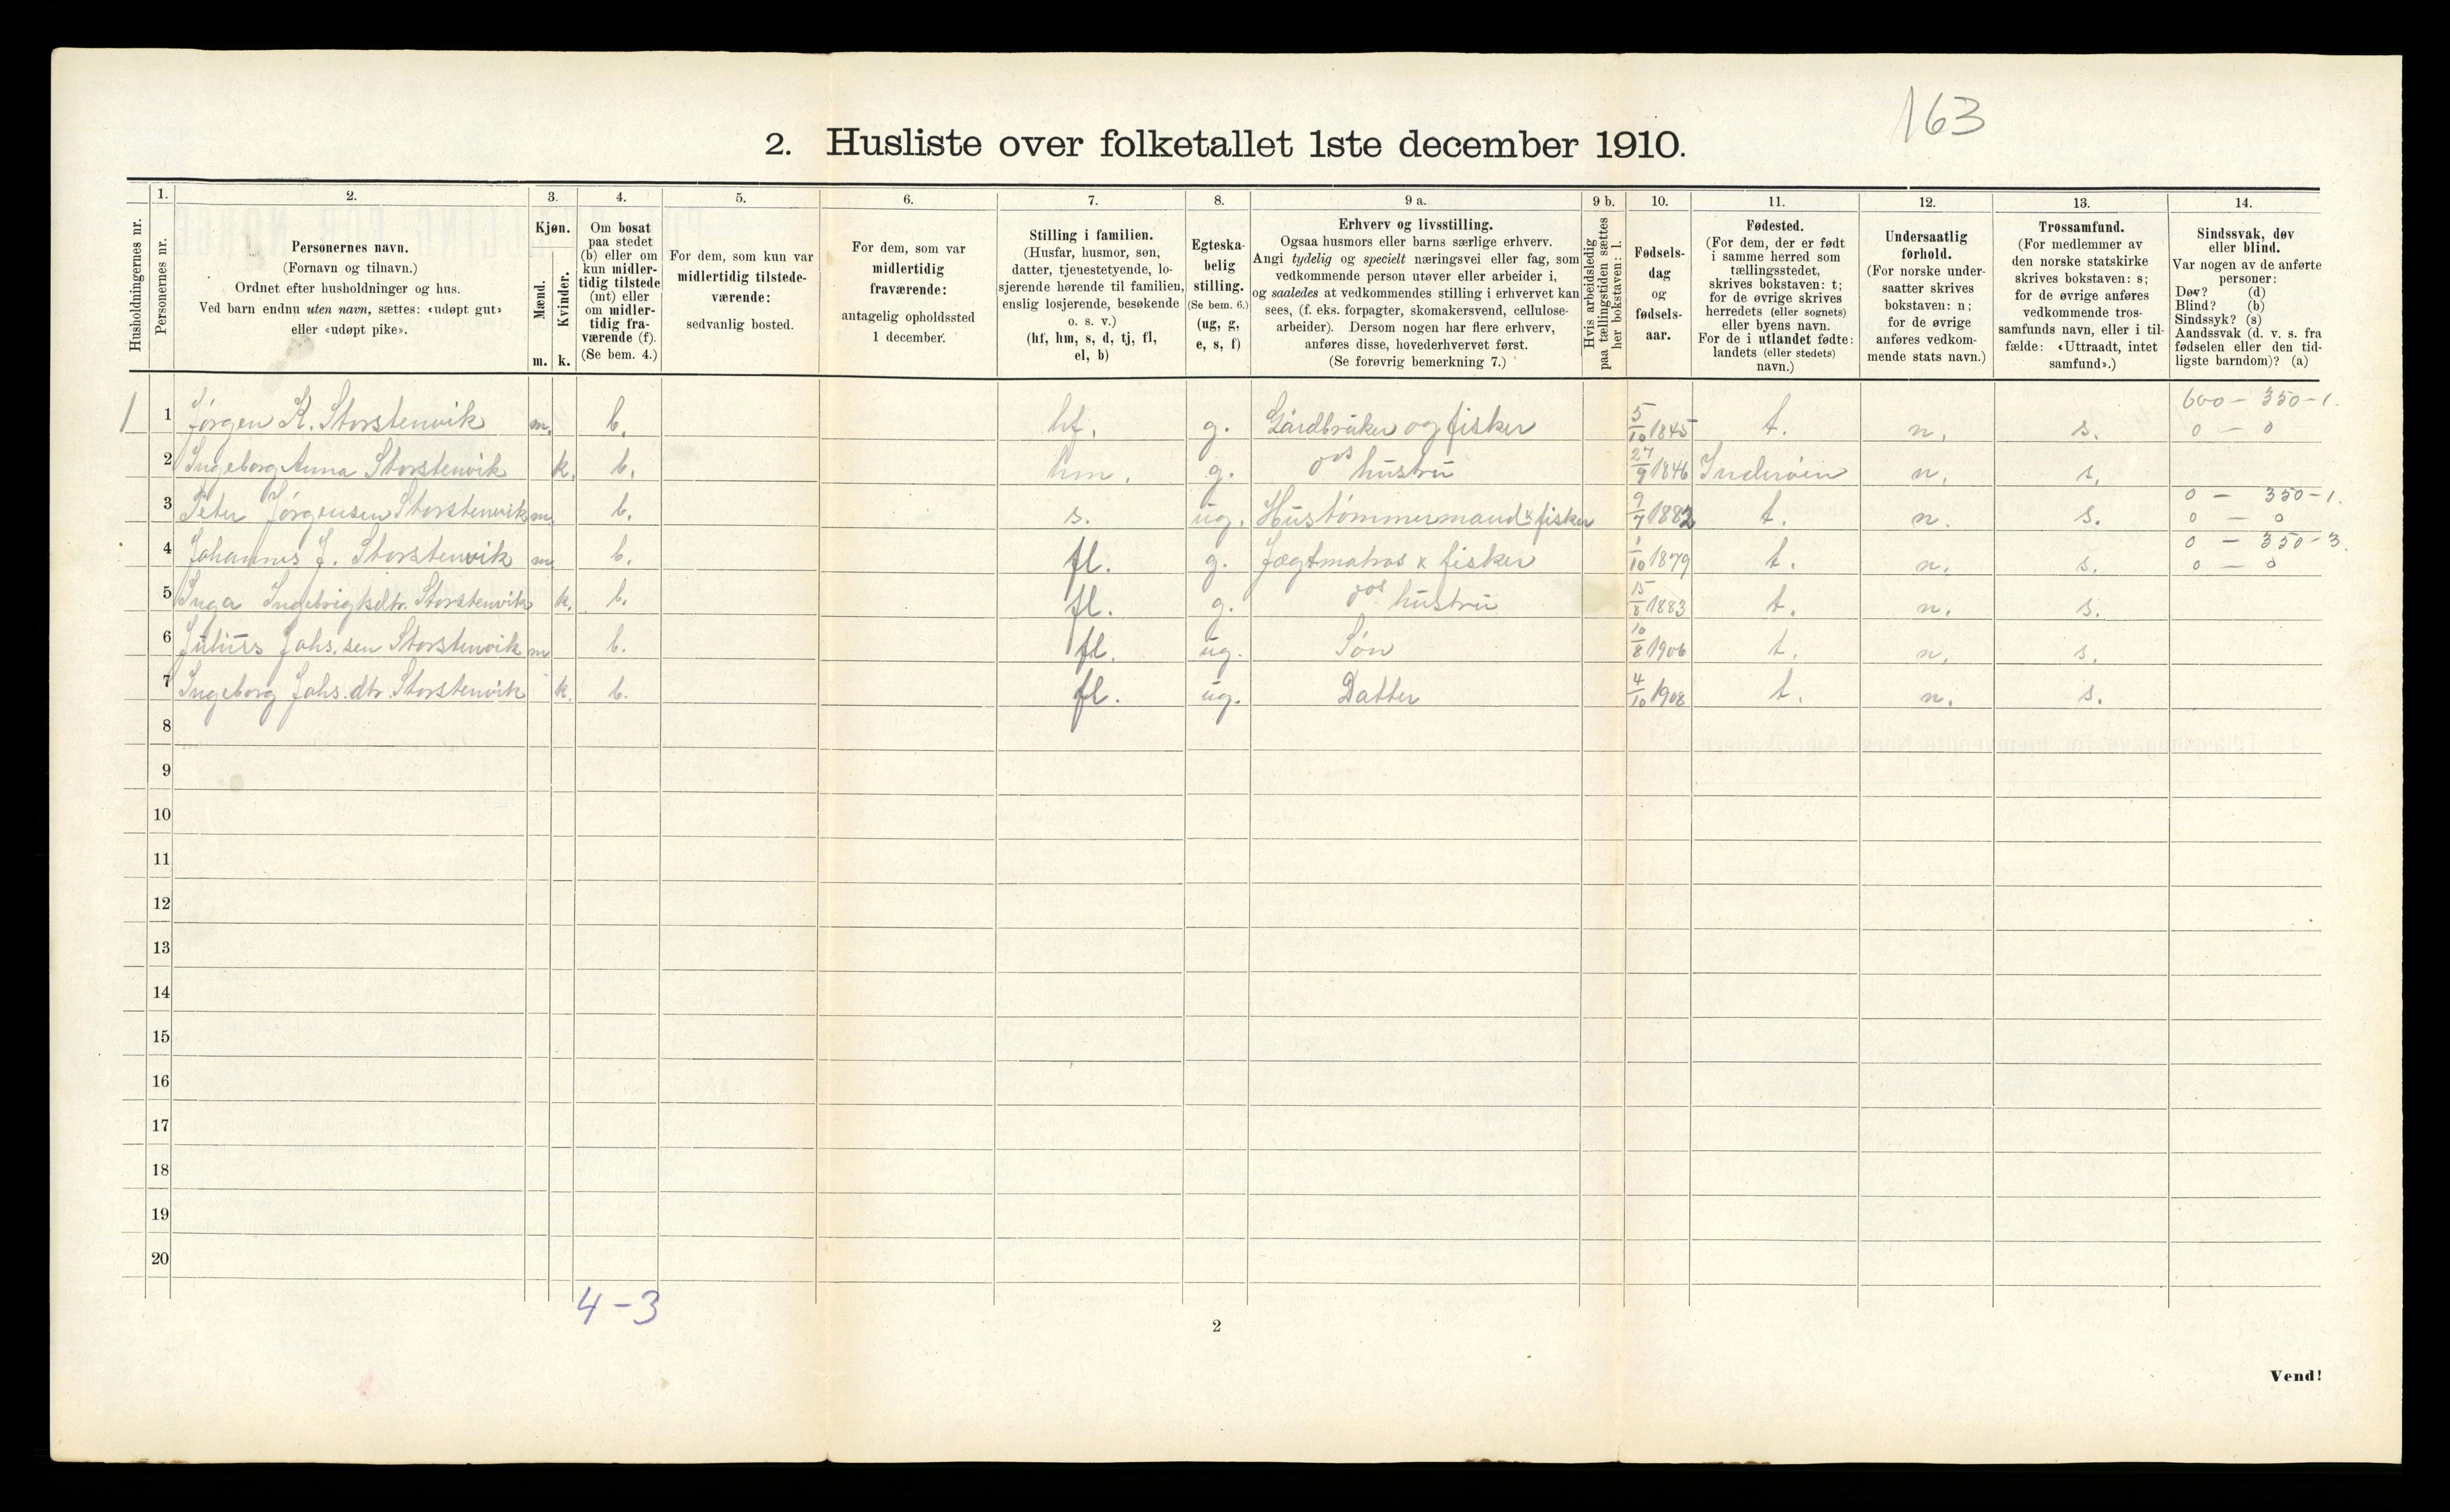 163
2. Husliste over folketallet 1ste december 1910.
Husholdningernes nr.
1.
Personernes nr.
2.
Personernes navn.
(Fornavn og tilnavn.)
Ordnet efter husholdninger og hus.
Ved barn endnu uten navn, sættes: «udøpt gut»
eller «udøpt pike».
3.
Kjøn.
Mænd.
Kvinder.
m. k.
4.
Om bosat
paa stedet
(b) eller om
kun midler-
tidig tilstede
(mt) eller
om midler-
tidig fra-
værende (f).
(Se bem. 4.)
5.
For dem, som kun var
midlertidig tilstede-
værende:
sedvanlig bosted.
6.
For dem, som var
midlertidig
fraværende:
antagelig opholdssted
1 december.
7.
Stilling i familien.
(Husfar, husmor, søn,
datter, tjenestetyende, lo-
sjerende hørende til familien,
enslig losjerende, besøkende
o. s. v.)
(hf, hm, s, d, tj, fl,
el, b)
8.
Egteska-
belig
stilling.
(Se bem. 6.)
(ug, g,
e, s, f)
9 a.
Erhverv og livsstilling.
Ogsaa husmors eller barns særlige erhverv.
Angi tydelig og specielt næringsvei eller fag, som
vedkommende person utøver eller arbeider i,
og saaledes at vedkommendes stilling i erhvervet kan
sees, (f. eks. forpagter, skomakersvend, cellulose-
arbeider). Dersom nogen har flere erhverv,
anføres disse, hovederhvervet først.
(Se forøvrig bemerkning 7.)
9 b.
Hvis arbeidsledig
paa tællingstiden sættes
her bokstaven: l.
10.
Fødsels-
dag
og
fødsels-
aar.
11.
Fødested.
(For dem, der er født
i samme herred som
tællingsstedet,
skrives bokstaven: t;
for de øvrige skrives
herredets (eller sognets)
eller byens navn.
For de i utlandet fødte:
landets (eller stedets)
navn.)
12.
Undersaatlig
forhold.
(For norske under-
saatter skrives
bokstaven: n;
for de øvrige
anføres vedkom-
mende stats navn.)
13.
Trossamfund.
(For medlemmer av
den norske statskirke
skrives bokstaven: s;
for de øvrige anføres
vedkommende tros-
samfunds navn, eller i til-
fælde: «Uttraadt, intet
samfund».)
14.
Sindssvak, døv
eller blind.
Var nogen av de anførte
personer:
Døv? (d)
Blind? (b)
Sindssyk? (s)
Aandssvak (d. v. s. fra
fødselen eller den tid-
ligste barndom)? (a)
600 – 350 – 1.
1 1 Jørgen K. Storstenvik m. b. hf. g. Gårdbruker og fisker 5/10 1845 t. n. s. 0 – 0
2 Ingeborg Anna Storstenvik k. b. hm. g. hustru 27/9 1846 Inderøen n. s.
0 – 350 – 1.
3 Peter Jørgensen Storstenvik m. b. s. ug. Hustømmermand & fisker 9/7 1882 t. n. s. 0 – 0
0 – 350 – 3.
4 Johannes J. Storstenvik m. b. fl. g. Jægtmatros & fisker 1/10 1879 t. n. s. 0 – 0
5 Inga Ingebrigtsdtr. Storstenvik k. b. fl. g. hustru 15/8 1883 t. n. s.
6 Julius Johs.sen Storstenvik m b. fl. ug. Søn 10/8 1906 t. n. s.
7 Ingeborg Johs.dtr. Storstenvik k. b. fl. ug. Datter 4/10 1908 t. n. s.
8
9
10
11
12
13
14
15
16
17
18
19
20
4 – 3
2
Vend!